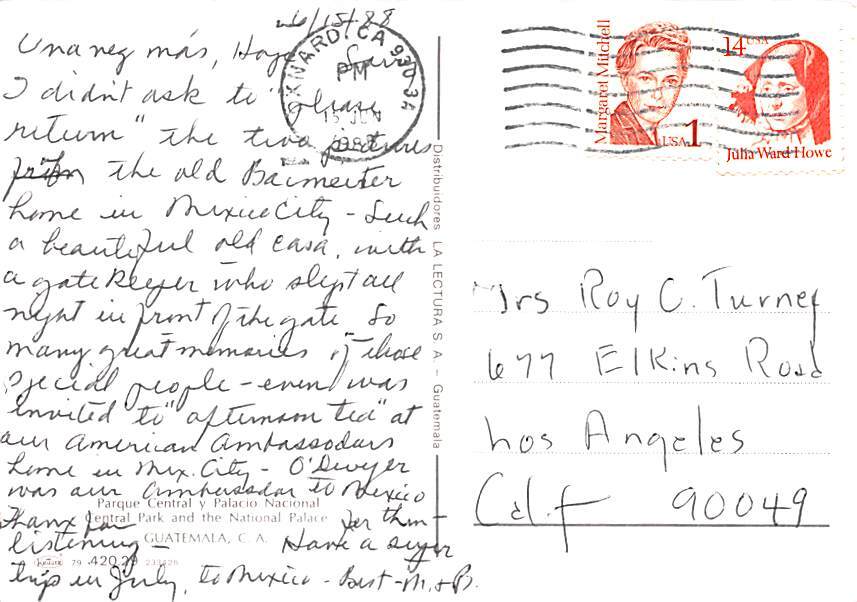 6/15/88
Una neg más, Hoya
I didn't ask to "please
return" the two pictures
from the old Bacmeister
home in Mexico City - Such
a beautiful old casa, with
a gate keeper who slept all
night in front of the gate So
many great memories of those
special people - even was
invited to "afternoon tea" at
our American Ambassadors
home in Mex. City - O'Dwyer
was our Ambassador to Mexico
thanx for
listening - Have a super
trip in July, to Mexico - Best - M. & B.
Parque Central y Palacio Nacional
Central Park and the National Palace
GUATEMALA, C. A.
79 420.29
Distribuidores LA LECTURA S A - Guatemala
OXNARD, CA 930
PM
15 JUN
1988
Margaret Mitchell
USA 1
14 USA
Julia Ward Howe
Mrs Roy C. Turney
677 Elkins Road
Los Angeles
Calif 90049